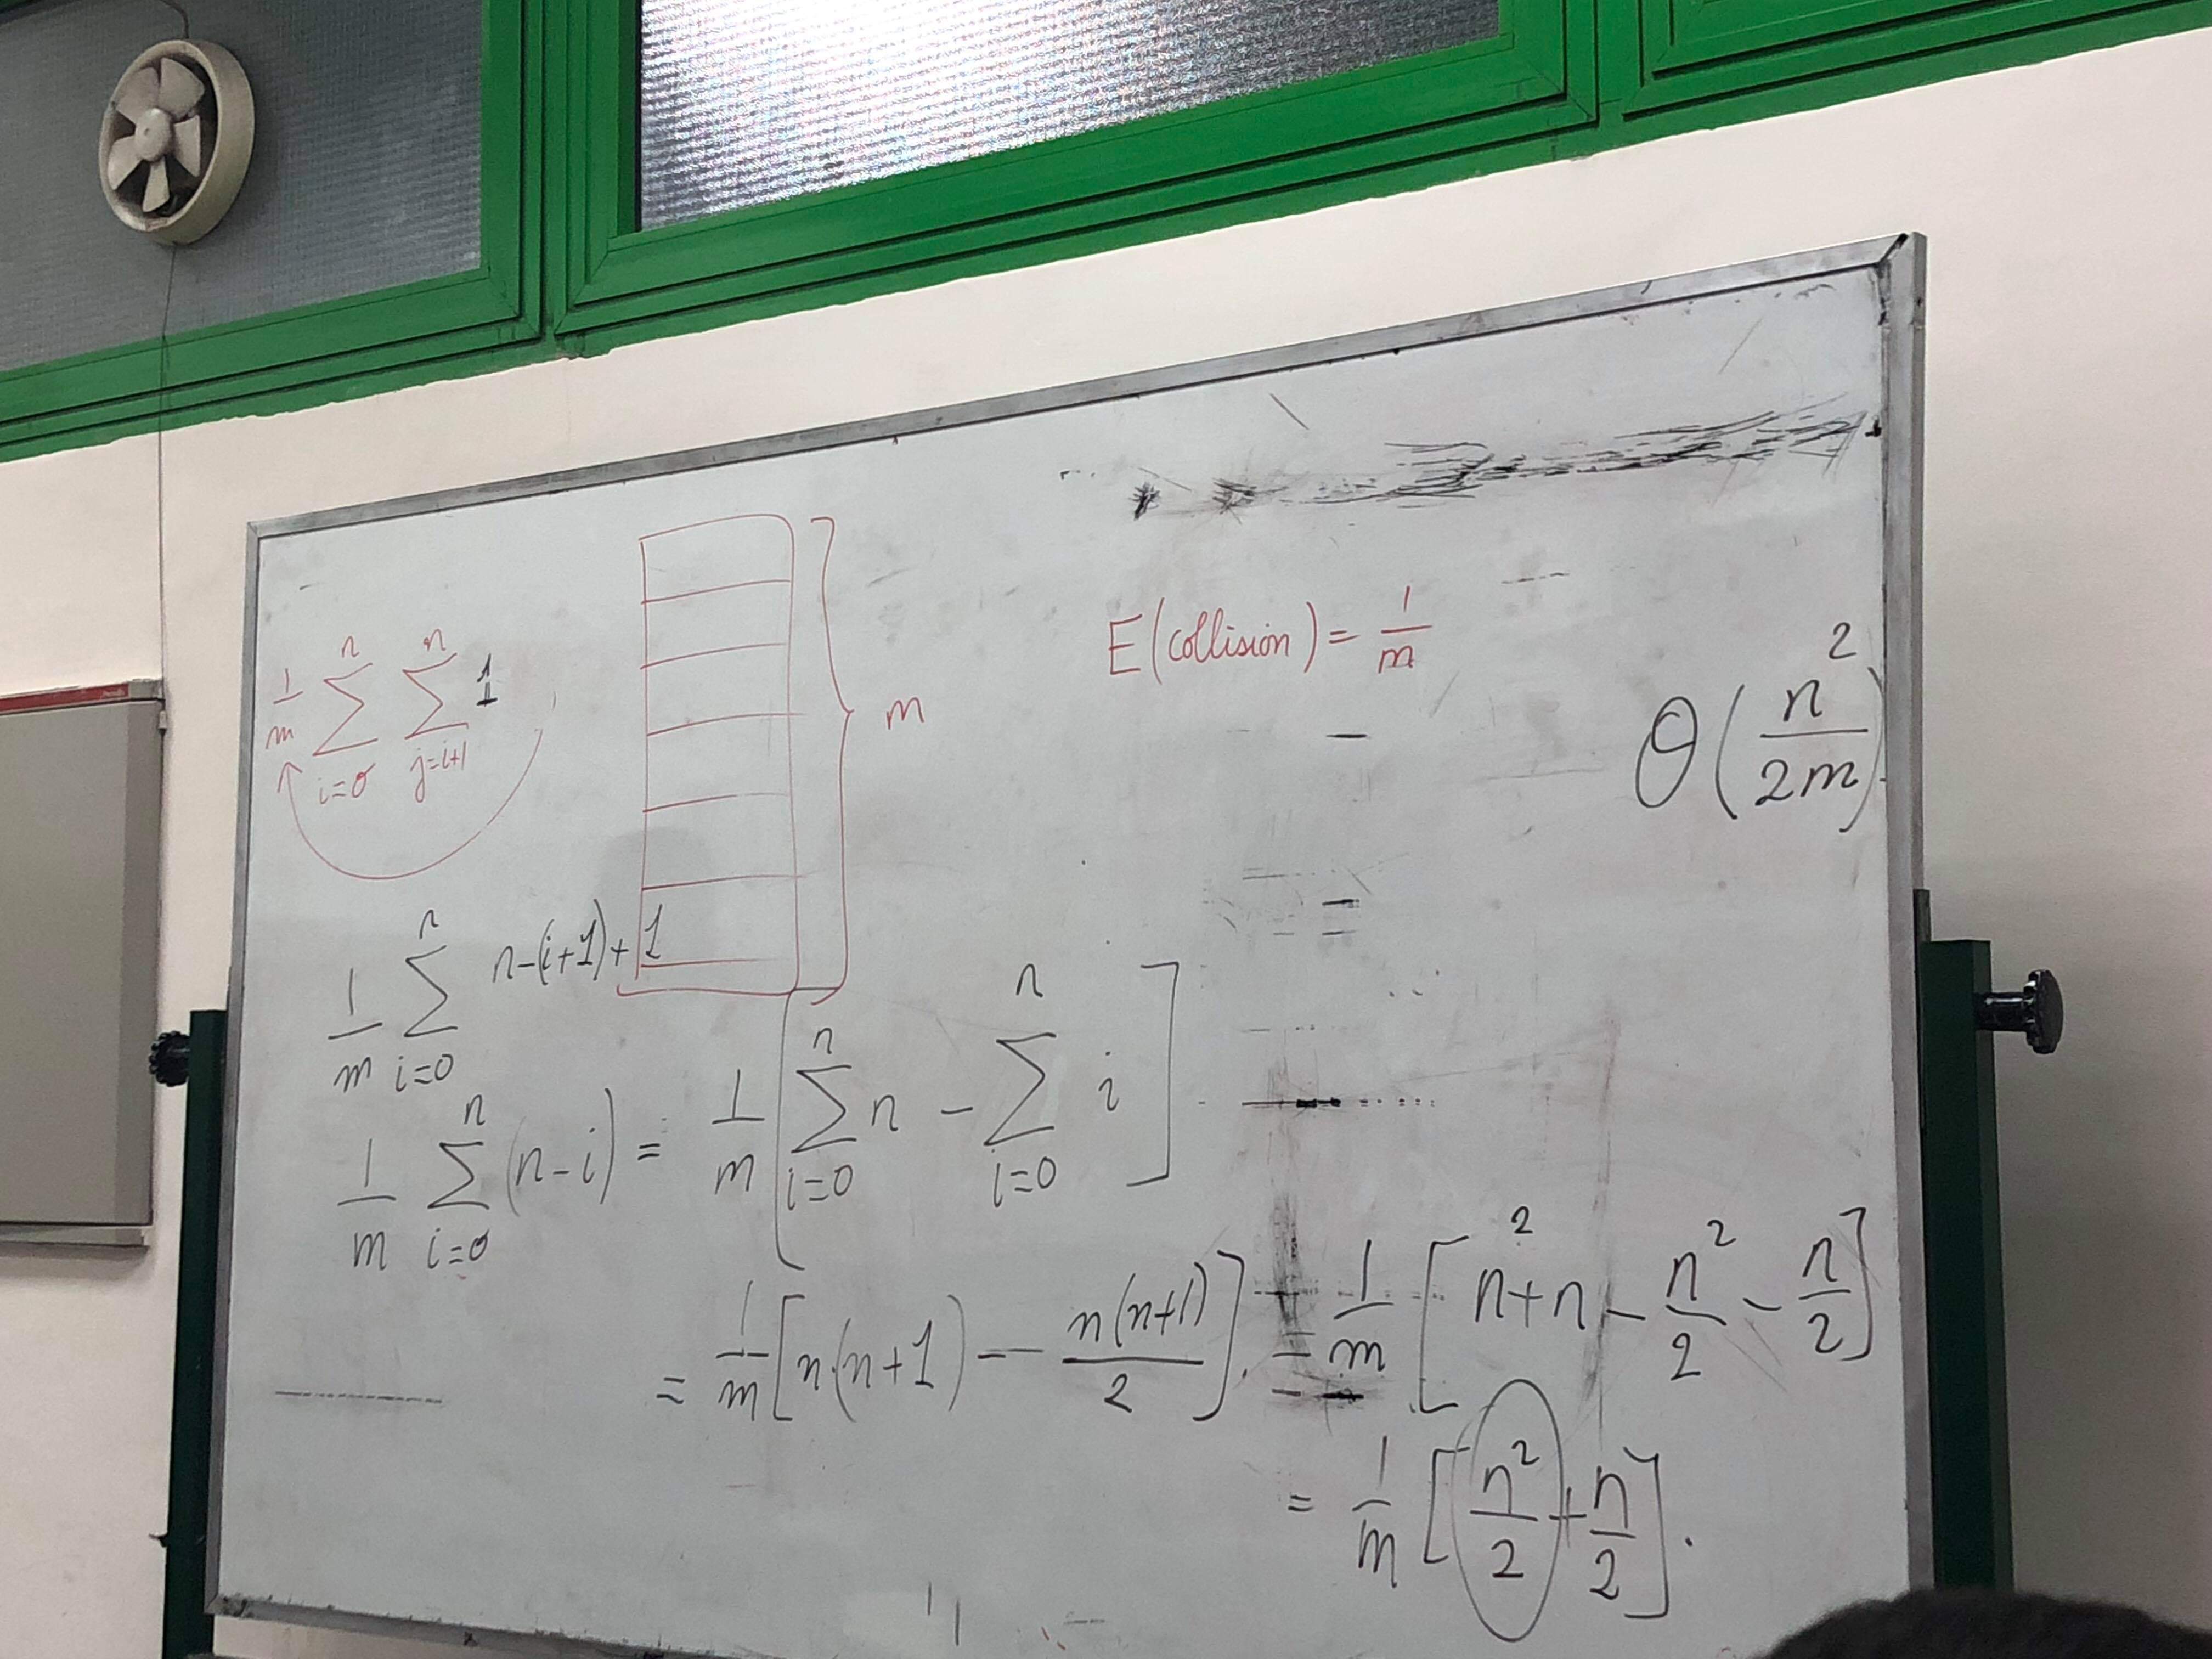 1/m ∑_{i=0}^{n} ∑_{j=i+1}^{n} 1
m
E(collision) = 1/m
Θ(n²/2m)
1/m ∑_{i=0}^{n} n-(i+1)+1
1/m ∑_{i=0}^{n} (n-i) = 1/m [∑_{i=0}^{n} n - ∑_{i=0}^{n} i]
= 1/m [n·(n+1) - n(n+1)/2] = 1/m [n²+n - n²/2 - n/2]
= 1/m [n²/2 + n/2].